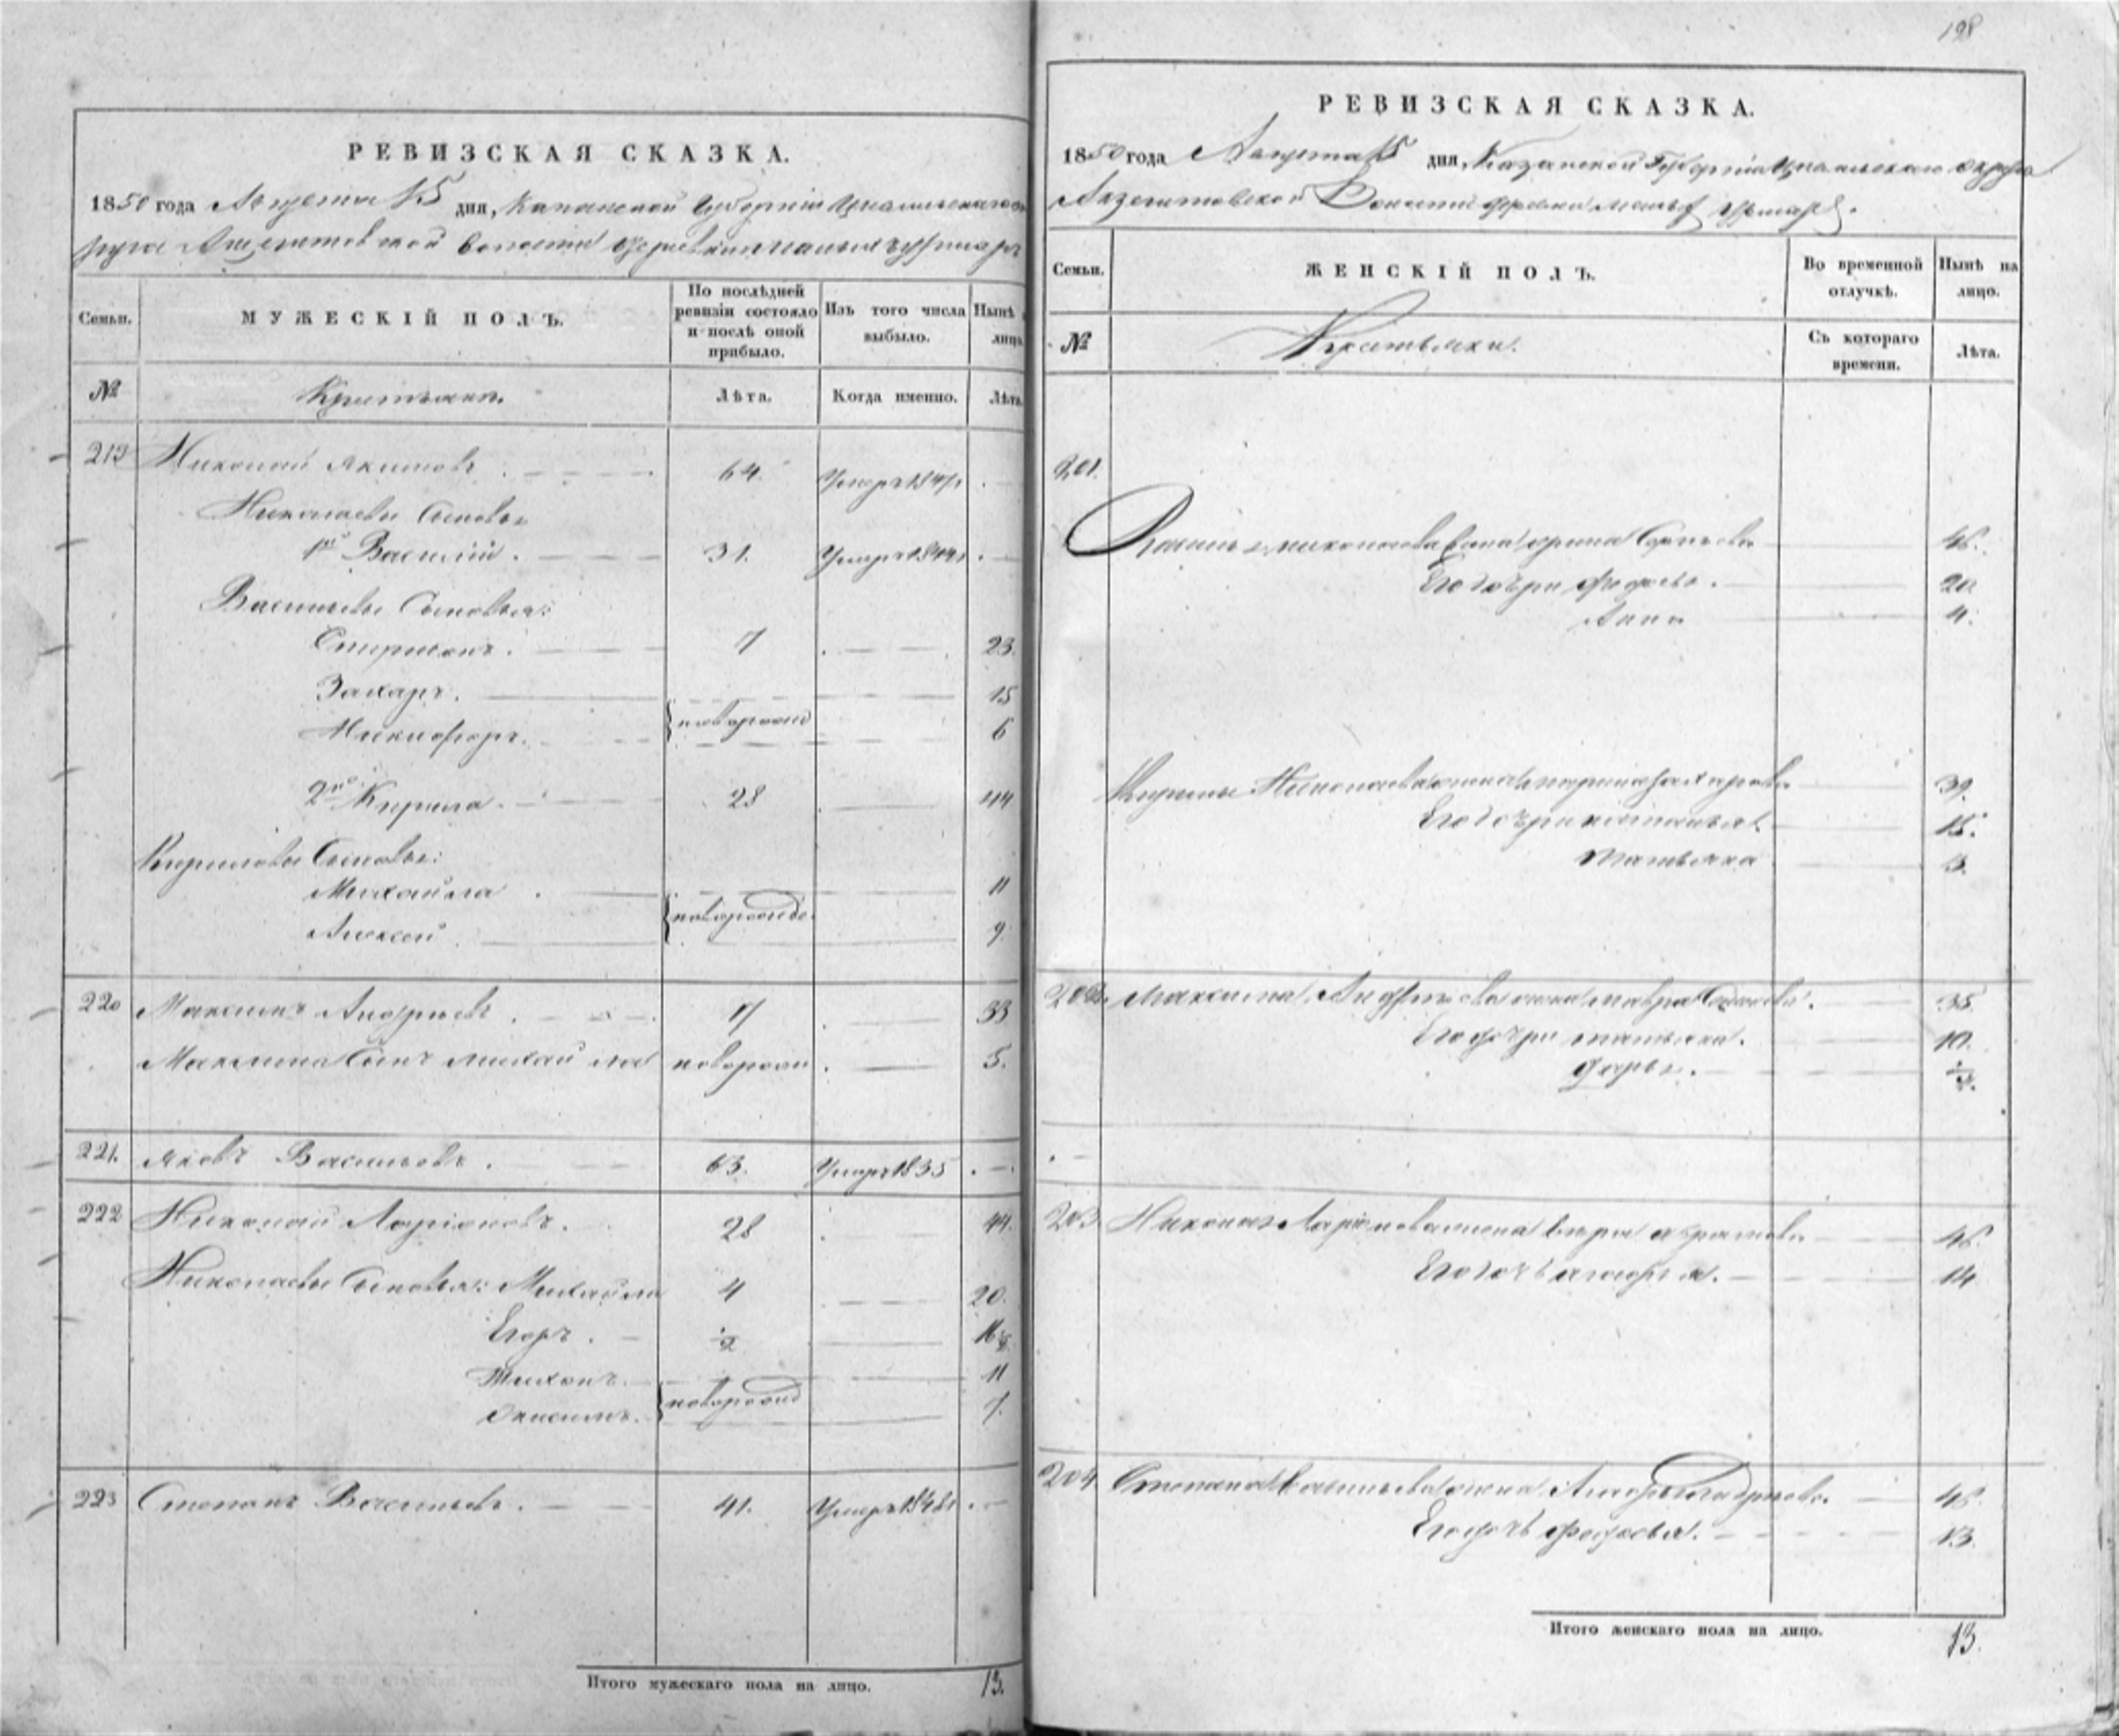 РЕВИЗСКАЯ СКАЗКА.
1850 года Августа 15 дня, Казанской Губернiи Цывильскаго ок
руга волости деревни Малыхъ
Семьи.
МУЖЕСКІЙ ПОЛЪ.
По послѣдней ревизіи состояло и послѣ оной прибыло.
Изъ того числа выбыло.
Нынѣ лицо
№
Крестьяне.
Лѣта.
Когда именно.
Лѣта
219 Николай Якимовъ 64. Умеръ 1847
Николаевы Сыновья
1й Василій. 31. Умеръ 1844
Васильевы Сыновья:
Спиридонъ. 7 23.
Захаръ. 15
новорожд
Никифоръ. 6
2й Кирила. 28 44
Кириловы Сыновья:
Михайла 11
новорожде
Алексей 9
220 Максимъ Андреевъ 17 33
Максима Сынъ Михайла новорожд 5.
221. Яковъ Васильевъ. 63. Умеръ 1835
222 Николай Ларіоновъ. 28 44.
Николаевы Сыновья: Михайла 4 20.
Егоръ. 1/2 16 1/2
Тихонъ. 11
новорожд
Онисимъ. 7.
223 Степанъ Васильевъ. 41. Умеръ 1848
Итого мужескаго пола на лицо. 13.
198
РЕВИЗСКАЯ СКАЗКА.
1850 года Августа 15 дня, Казанской Губерніи Цывильскаго округа
Волости деревни Малыхъ
Семьи.
ЖЕНСКІЙ ПОЛЪ.
Во временной отлучкѣ.
Нынѣ на лицо.
№
Крестьянки.
Съ котораго времени.
Лѣта.
201.
Василья Николаева жена Арина Сергѣева 46.
Его дочери Федосья. 20
Анна 4.
Кирилы Николаева жена Марина Захарова 39.
Его дочери Наталья. 15.
Татьяна 3.
202. Максима Андреева жена Мавра 35
Его дочери Татьяна. 10.
Дарья.
203. Николая Ларіонова жена Вера Абрамова 46.
Его дочь 14
204 Степана Васильева жена 48.
Его дочь Федосья. 13.
Итого женскаго пола на лицо. 13.